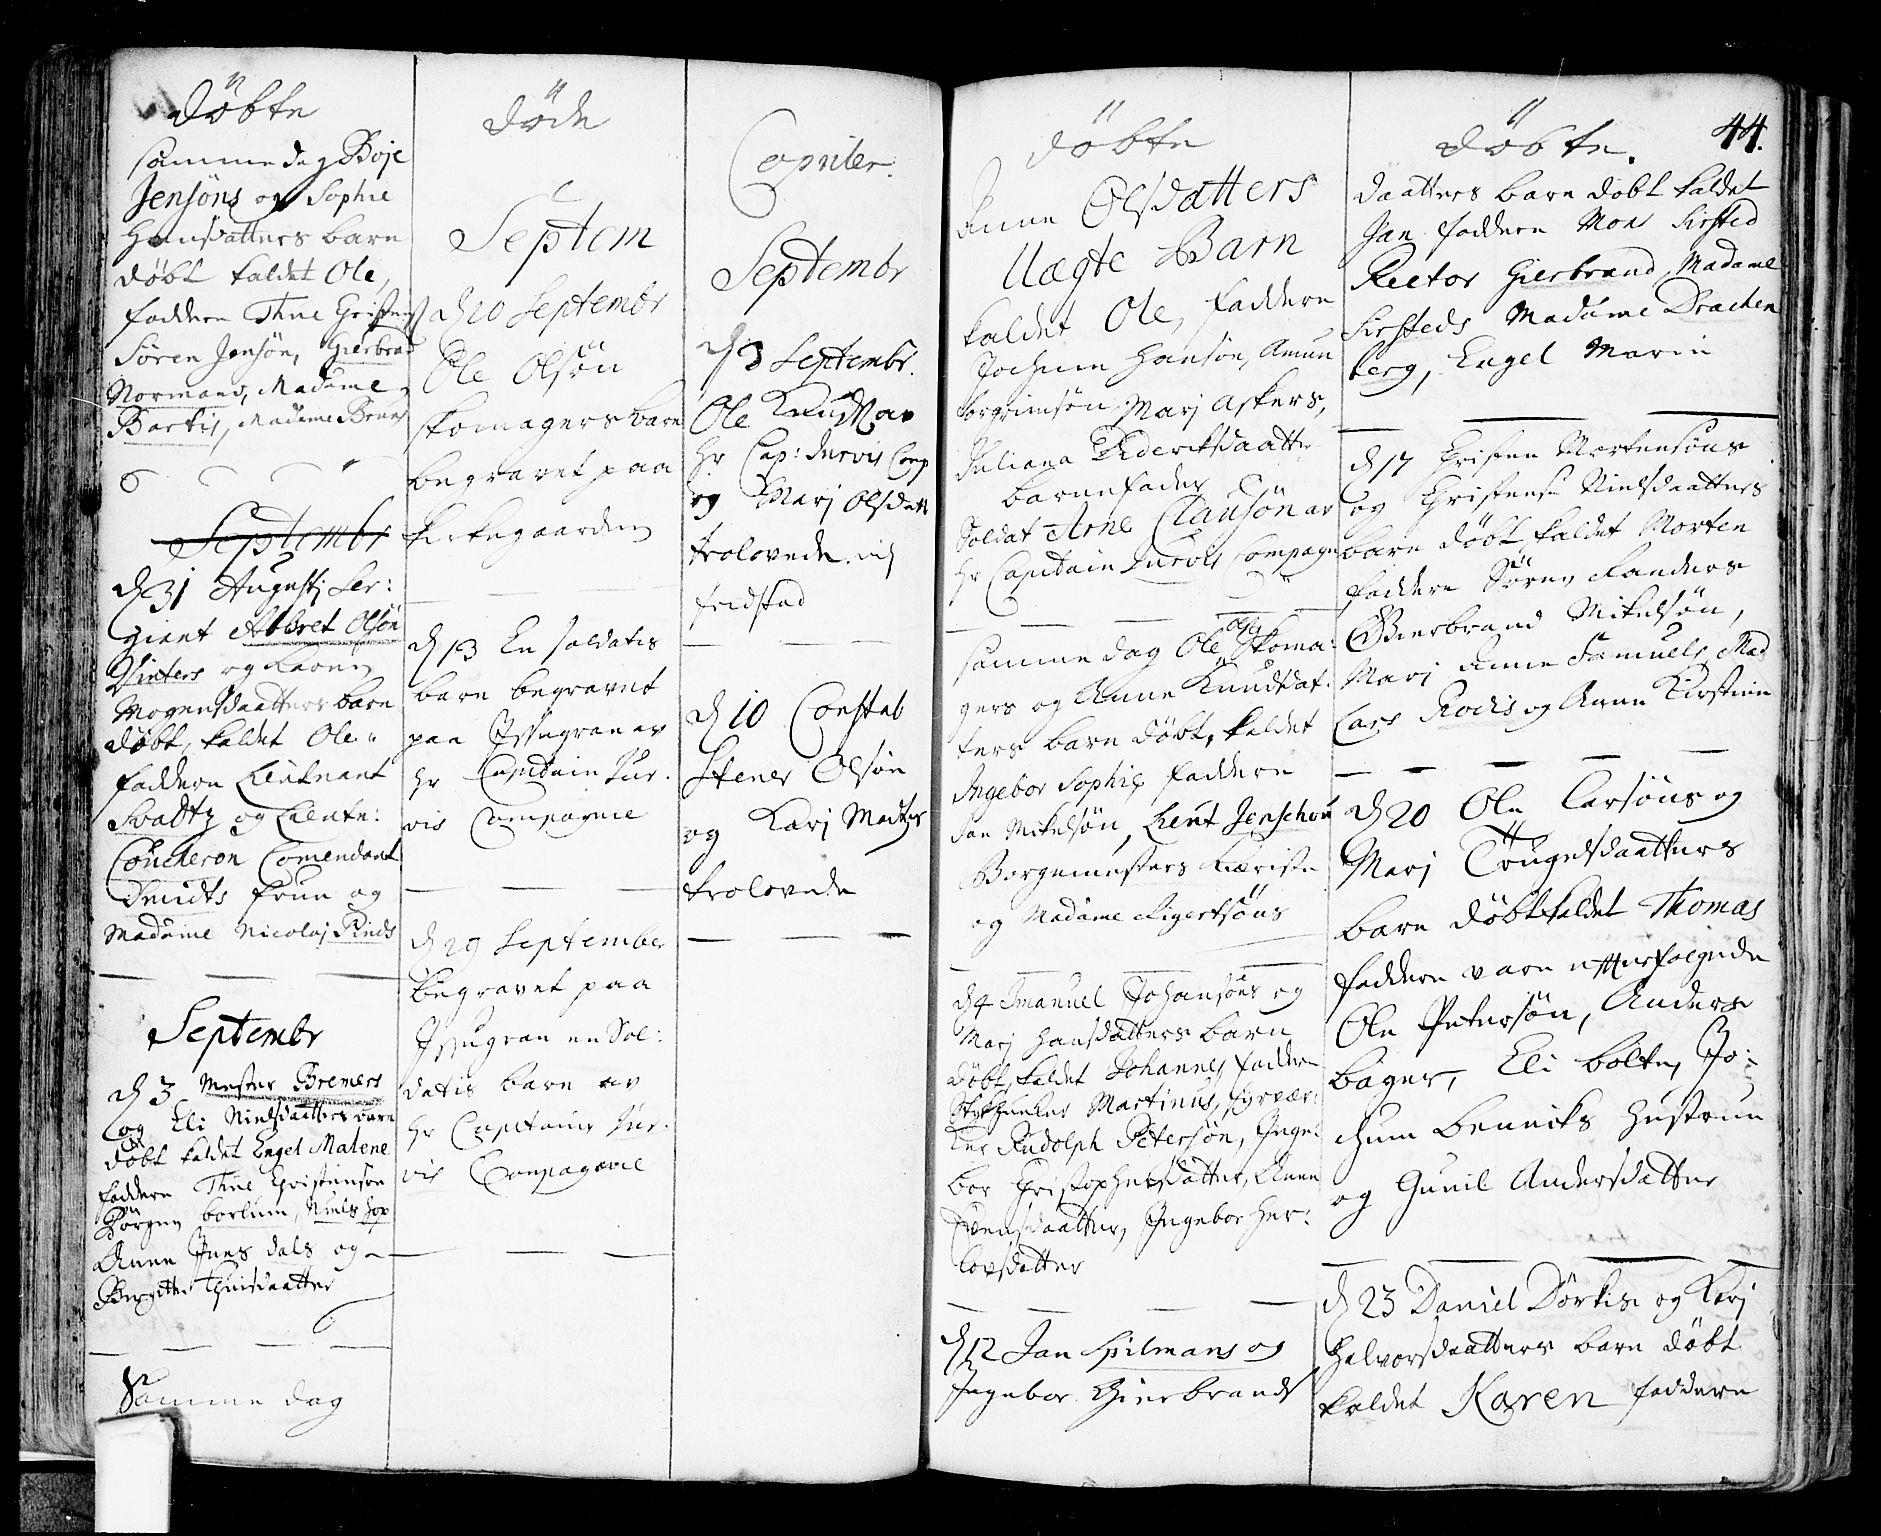 döbte
samme dag Boje
Jensöns og Sophie
Hansdatters barn
döbt kaldet Ole,
faddere Thue Christens
Sören Jensön, Gierbrad
Normand, Madame
Bartis, Madame
Septembr
d 31 Augustj Ser:
giant Albret Olsön
Vinters og Karen
Mogensdaatters barn
döbt, kaldet Ole.
faddere Lieutnant
Svadtz og Lieute:
Coucheron Comendant
Smidts frue og
Madame Nicolaj Pinds
Septembr
d 3 Mester Bremers
og Eli Nielsdaatters barn
döbt kaldet Engel Malene
faddere Thue Christensön
Börgen borlum, Niels Jop
Anne Jens dals og
Bergithe Thuisdaatter
Samme dag
döde
Septem
d 20 Septembr
Ole Olsön
skomagers barn
begravet paa
kirkegaarden
d 13 En soldatis
barn begravet
paa Issugran av
hr Capitain Jur-
vis Compagnie
d 29 September
begravet paa
Issugran en Sol:
datis barn av
hr Capitain Jur-
vis Compagnie
Copuler.
Septembr
d 3 Septembr.
Ole Knudtz av
hr Cap: Jurvis Comp
og Marj Olsdatt
trolovede udj
fridstad
d 10 Constab
Stener Olsön
og Karj Madtzr
trolovede
döbte
Anne Olsdatters
Uægte Barn
kaldet Ole, faddere
Jochum Hansön, Amun
Torgrimsön Marj Askers,
Juliana Dideriksdaatter
barnefader
Soldat Arne Clausön av
hr Capitain Jurvis Compagni
samme dag Ole Ols Skoma-
gers og Anne Knudsdat-
ters barn döbt, kaldet
Ingebor Sophie faddere
Jan Mikelsön, Lieut Jenschou
Borgemesters Kieriste
og Madame Sigertsöns
d 4 Imanuel Johansöns og
Marj Hansdatters barn
döbt, kaldet Johannes, faddere
Stykjunker Martinus, fyrvær-
ker Rudolph Petersön, Inge-
bor Christophersdatter, Anne
Svensdaatter, Ingebor Her-
lovsdatter
d 12 Jan Spilmans og
Ingebor Gierbrands
döbte. 44.
daatters barn döbt kaldet
Jan faddere Mons Kirsted
Rector Gierbrand, Madame
Kirsteds Madame Drachen
berg, Engel Marin
d 17 Christen Mortensöns
og Christense Nielsdaatters
barn döbt, kaldet Morten
faddere Sören Randers
Gierbrand Mikelsön,
Marj Anne Samuels, Mad
Lars Rodis og Anne Kirstine
d 20 Ole Larsöns og
Marj Trugelsdaatters
barn döbt kaldet Thomas
faddere vare efterfølgende
Ole Petersön, Anders
bager, Eli bolte, Jo-
chum Benniks hustrue
og Gunil Andersdatter
d 23 Daniel Dörkis og Karj
Halvorsdaatters barn döbt
kaldet Karen faddere